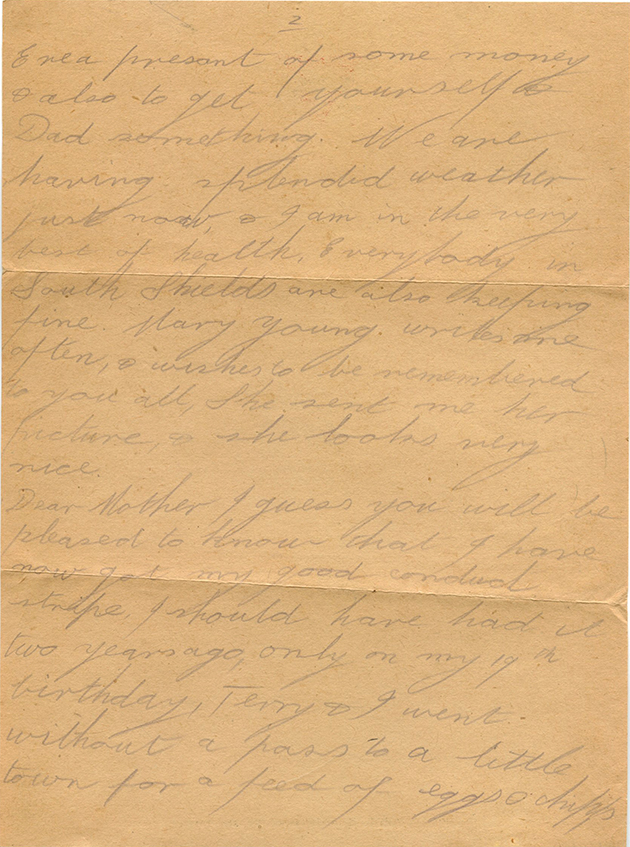 2
Ena a present of some money
& also to get yourself &
Dad something. We are
having splendid weather
just now, & I am in the very
best of health. Everybody in
South Shields are also keeping
fine. Mary Young writes me
often, & wishes to be remembered
to you all, She sent me her
picture, & she looks very
nice.
Dear Mother I guess you will be
pleased to know that I have
now got my good conduct
stripe. I should have had it
two years ago, only on my 19th
birthday, Terry & I went
without a pass to a little
town for a feed of eggs & chipps